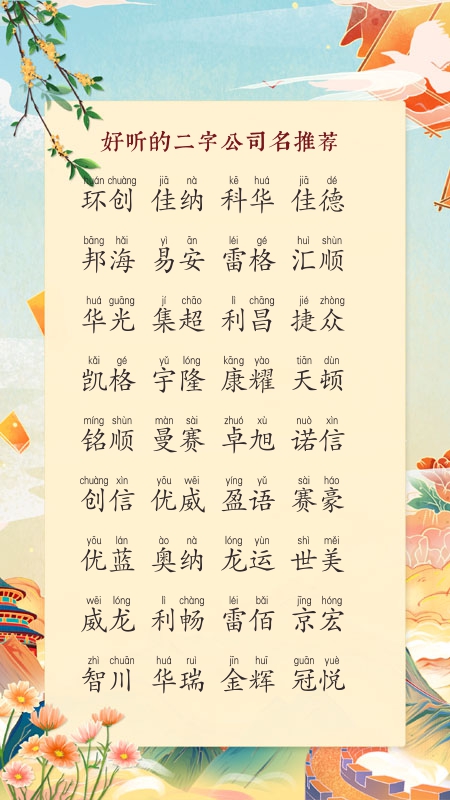 好听的二字公司名推荐
huán chuàng jiā nà kē huá jiā dé
环创 佳纳 科华 佳德
bāng hǎi yì ān léi gé huì shùn
邦海 易安 雷格 汇顺
huá guāng jí chāo lì chāng jié zhòng
华光 集超 利昌 捷众
kǎi gé yǔ lóng kāng yào tiān dùn
凯格 宇隆 康耀 天顿
míng shùn màn sài zhuó xù nuò xìn
铭顺 曼赛 卓旭 诺信
chuàng xìn yōu wēi yíng yǔ sài háo
创信 优威 盈语 赛豪
yōu lán ào nà lóng yùn shì měi
优蓝 奥纳 龙运 世美
wēi lóng lì chàng léi bǎi jīng hóng
威龙 利畅 雷佰 京宏
zhì chuān huá ruì jīn huī guān yuè
智川 华瑞 金辉 冠悦